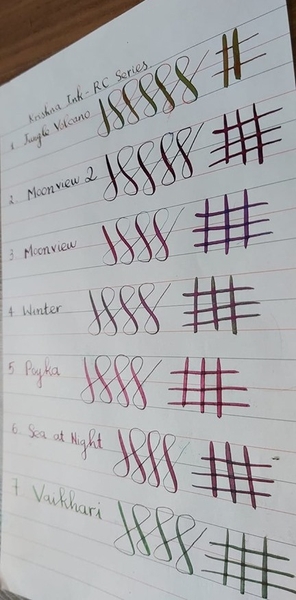 Krishna Ink - RC Series
1. Jungle Volcano
2. Moonview 2
3 Moonview
4 Winter
5 Poyka
6 Sea at Night
7 Vaikhari